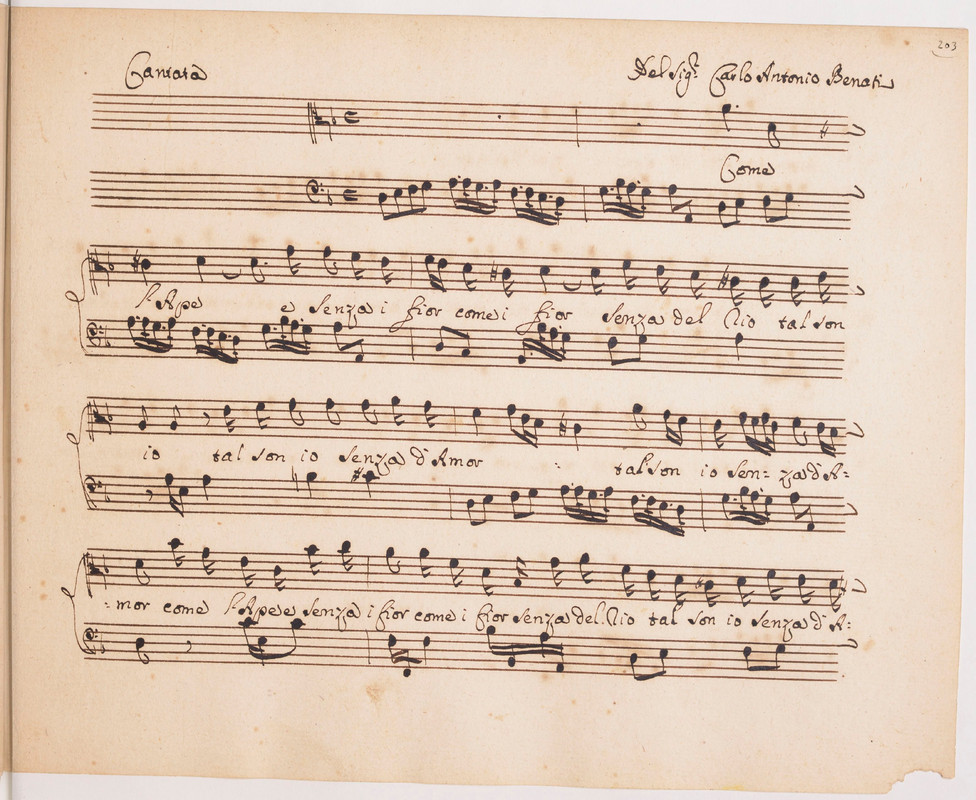 203
Cantata Del Sigr. Carlo Antonio Benati
Come
l'Ape e senza i fior come i fior senza del Clio tal son
io tal son io senza d'Amor tal son io sen= za d'A=
=mor come l'Ape e senza i fior come i fior senza del Clio tal son io senza d'A=